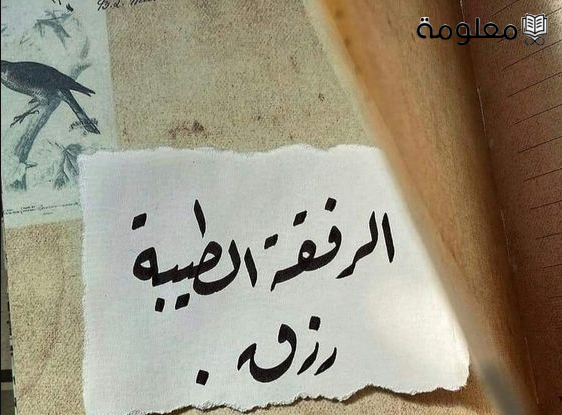 معلومة
الرفقة الطيبة
رزق .